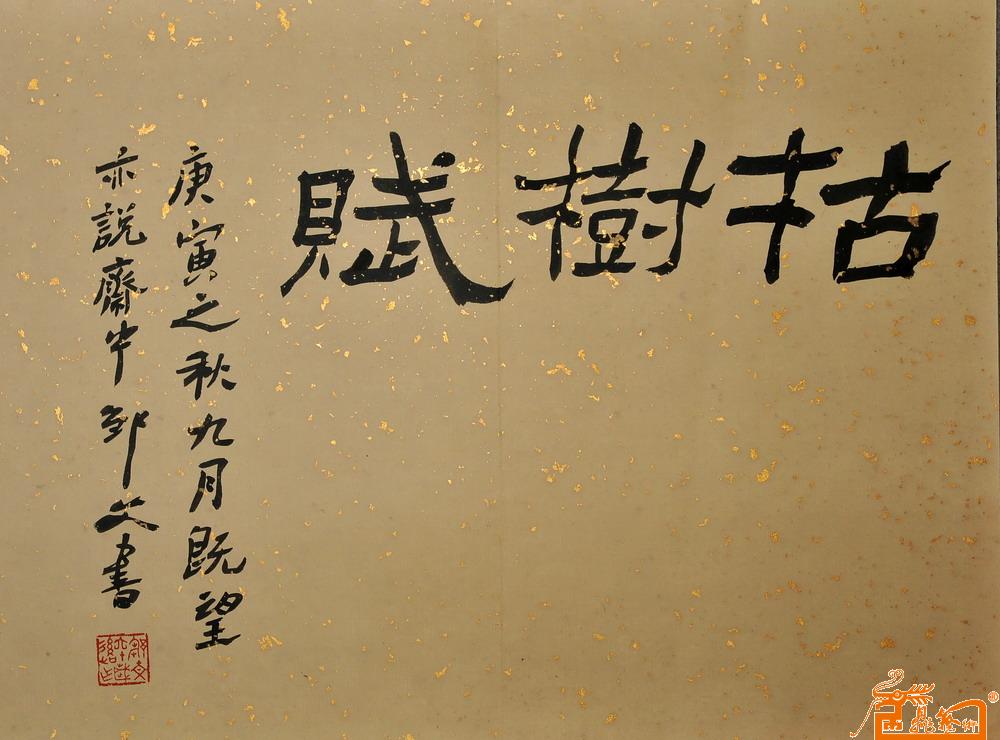 枯樹賦
庚寅之秋九月既望
亦説齋中邹文書